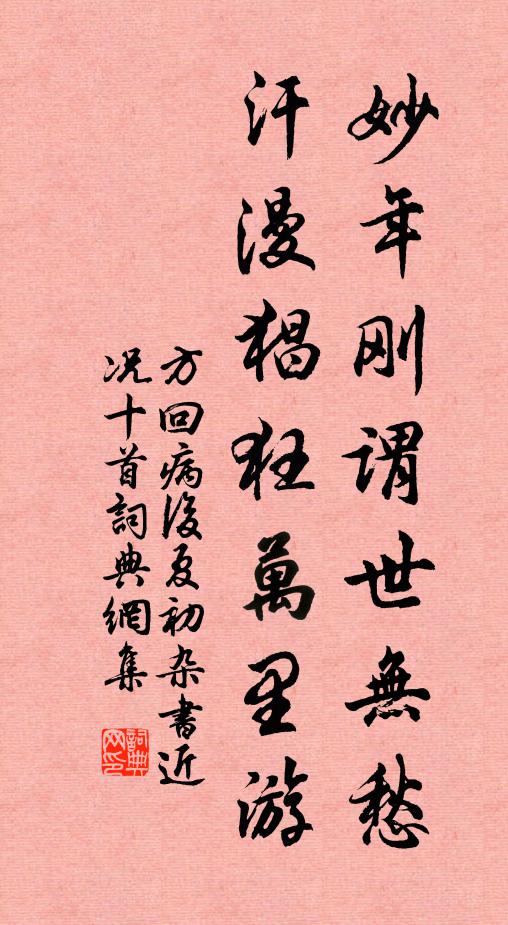 妙年刚謂世無愁
汗漫猖狂萬里游
方回病後夏初杂書近
况十首詞典網集
詞典网印